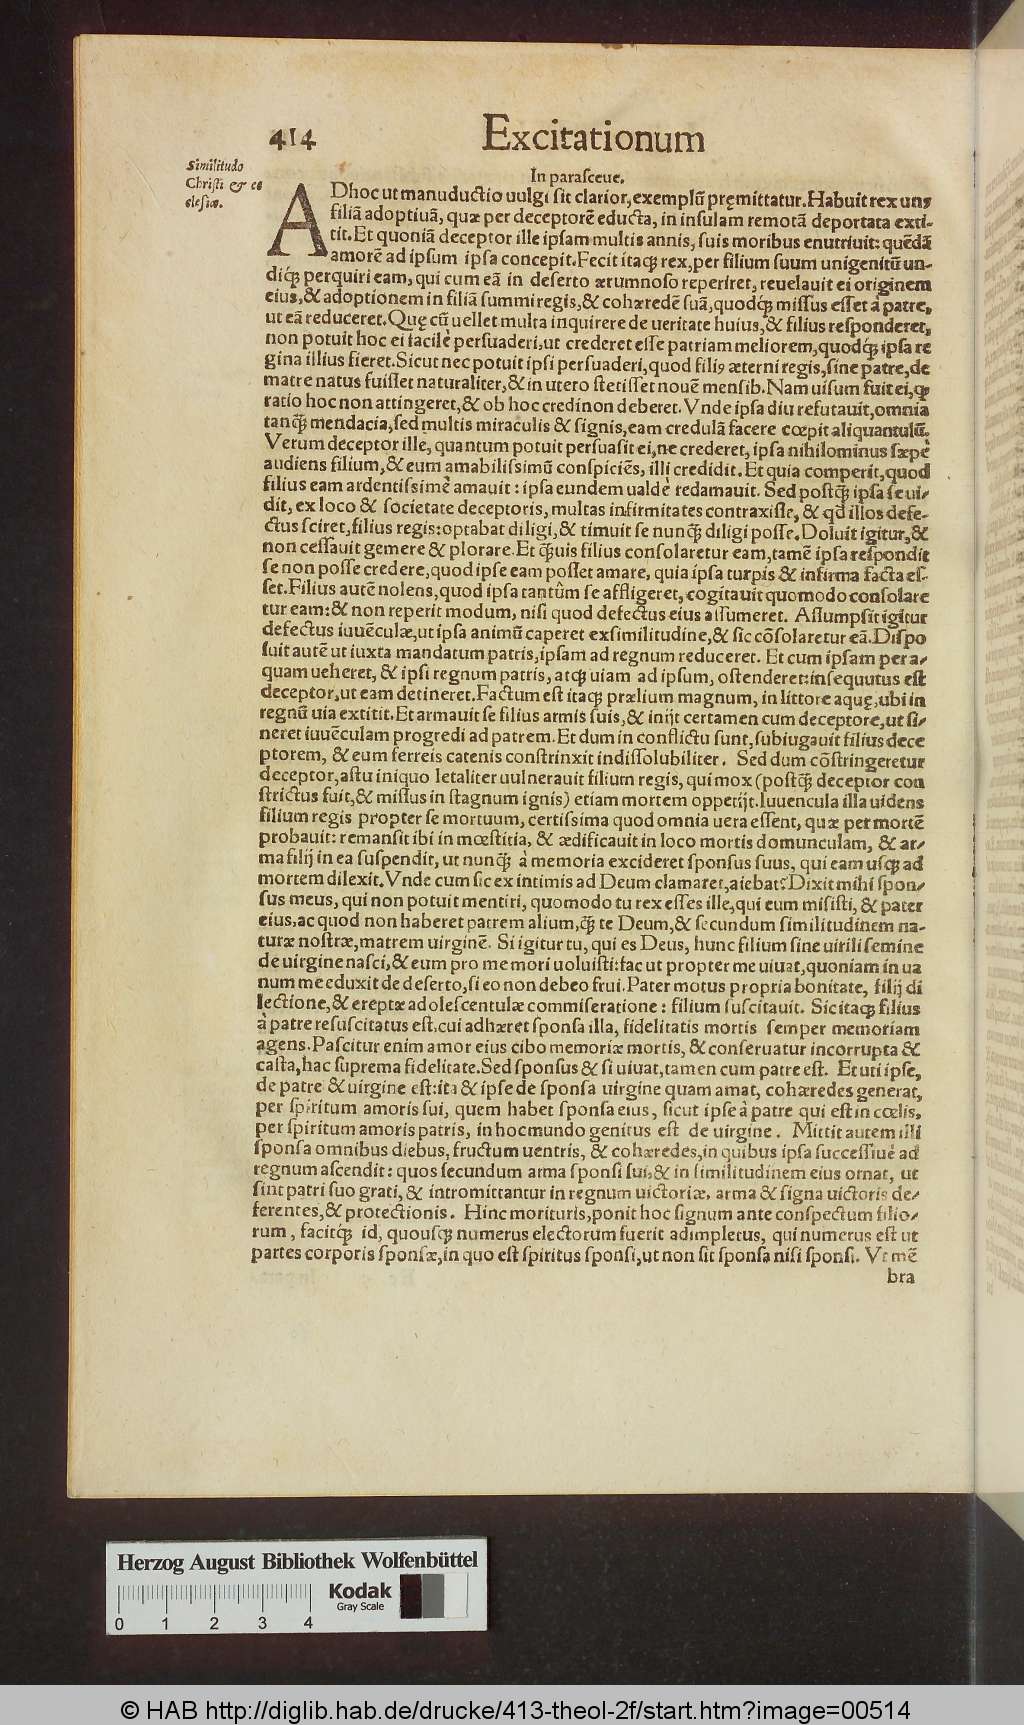 414 Excitationum
Similitudo
Christi & ec
clesiæ.
In parasceue.
ADhoc ut manuductio uulgi sit clarior, exemplũ pręmittatur. Habuit rex unꝰ
filiã adoptiuã, quæ per deceptorẽ educta, in insulam remotã deportata exti-
tit. Et quoniã deceptor ille ipsam multis annis, suis moribus enutriuit: quẽdã
amorẽ ad ipsum ipsa concepit. Fecit itaqꝫ rex, per filium suum unigenitũ un-
diqꝫ perquiri eam, qui cum eã in deserto ærumnoso reperiret, reuelauit ei originem
eius, & adoptionem in filiã summi regis, & cohæredẽ suã, quodqꝫ missus esset à patre,
ut eã reduceret. Quę cũ uellet multa inquirere de ueritate huius, & filius responderet,
non potuit hoc ei facile persuaderi, ut crederet esse patriam meliorem, quodqꝫ ipsa re
gina illius fieret. Sicut nec potuit ipsi persuaderi, quod filiꝰ æterni regis, sine patre, de
matre natus fuisset naturaliter, & in utero stetisset nouẽ mensib. Nam uisum fuit ei, ꝙ
ratio hoc non attingeret, & ob hoc credi non deberet. Vnde ipsa diu refutauit, omnia
tanq̃ mendacia, sed multis miraculis & signis, eam credulã facere cœpit aliquantulũ.
Verum deceptor ille, quantum potuit persuasit ei, ne crederet, ipsa nihilominus sæpè
audiens filium, & eum amabilissimũ conspiciẽs, illi credidit. Et quia comperit, quod
filius eam ardentissimè amauit: ipsa eundem ualdè redamauit. Sed postq̃ ipsa se ui-
dit, ex loco & societate deceptoris, multas infirmitates contraxisse, & qd̃ illos defe-
ctus sciret, filius regis: optabat diligi, & timuit se nunq̃ diligi posse. Doluit igitur, &
non cessauit gemere & plorare. Et q̃uis filius consolaretur eam, tamẽ ipsa respondit
se non posse credere, quod ipse eam posset amare, quia ipsa turpis & infirma facta es-
set. Filius autẽ nolens, quod ipsa tantũm se affligeret, cogitauit quomodo consolare
tur eam: & non reperit modum, nisi quod defectus eius assumeret. Assumpsit igitur
defectus iuuẽculæ, ut ipsa animũ caperet ex similitudine, & sic cõsolaretur eã. Dispo
suit autẽ ut iuxta mandatum patris, ipsam ad regnum reduceret. Et cum ipsam per a-
quam ueheret, & ipsi regnum patris, atqꝫ uiam ad ipsum, ostenderet: insequutus est
deceptor, ut eam detineret. Factum est itaqꝫ prælium magnum, in littore aquę, ubi in
regnũ uia extitit. Et armauit se filius armis suis, & inijt certamen cum deceptore, ut si-
neret iuuẽculam progredi ad patrem. Et dum in conflictu sunt, subiugauit filius dece
ptorem, & eum ferreis catenis constrinxit indissolubiliter. Sed dum cõstringeretur
deceptor, astu iniquo letaliter uulnerauit filium regis, qui mox (postq̃ deceptor con
strictus fuit, & missus in stagnum ignis) etiam mortem oppetijt. Iuuencula illa uidens
filium regis propter se mortuum, certissima quod omnia uera essent, quæ per mortẽ
probauit: remansit ibi in mœstitia, & ædificauit in loco mortis domunculam, & ar-
ma filij in ea suspendit, ut nunq̃ à memoria excideret sponsus suus, qui eam usqꝫ ad
mortem dilexit. Vnde cum sic ex intimis ad Deum clamaret, aiebat: Dixit mihi spon-
sus meus, qui non potuit mentiri, quomodo tu rex esses ille, qui eum misisti, & pater
eius, ac quod non haberet patrem alium, q̃ te Deum, & secundum similitudinem na-
turæ nostræ, matrem uirginẽ. Si igitur tu, qui es Deus, hunc filium sine uirili semine
de uirgine nasci, & eum pro me mori uoluisti: fac ut propter me uiuat, quoniam in ua
num me eduxit de deserto, si eo non debeo frui. Pater motus propria bonitate, filij di
lectione, & ereptæ adolescentulæ commiseratione: filium suscitauit. Sic itaqꝫ filius
à patre resuscitatus est, cui adhæret sponsa illa, fidelitatis mortis semper memoriam
agens. Pascitur enim amor eius cibo memoriæ mortis, & conseruatur incorrupta &
casta, hac suprema fidelitate. Sed sponsus & si uiuat, tamen cum patre est. Et uti ipse,
de patre & uirgine est: ita & ipse de sponsa uirgine quam amat, cohæredes generat,
per spiritum amoris sui, quem habet sponsa eius, sicut ipse à patre qui est in cœlis,
per spiritum amoris patris, in hoc mundo genitus est de uirgine. Mittit autem illi
sponsa omnibus diebus, fructum uentris, & cohæredes, in quibus ipsa successiuè ad
regnum ascendit: quos secundum arma sponsi sui, & in similitudinem eius ornat, ut
sint patri suo grati, & intromittantur in regnum uictoriæ, arma & signa uictoris de-
ferentes, & protectionis. Hinc morituris, ponit hoc signum ante conspectum filio-
rum, facitqꝫ id, quousqꝫ numerus electorum fuerit adimpletus, qui numerus est ut
partes corporis sponsæ, in quo est spiritus sponsi, ut non sit sponsa nisi sponsi. Vt mẽ
bra
Herzog August Bibliothek Wolfenbüttel
Kodak
Gray Scale
0 1 2 3 4
© HAB http://diglib.hab.de/drucke/413-theol-2f/start.htm?image=00514